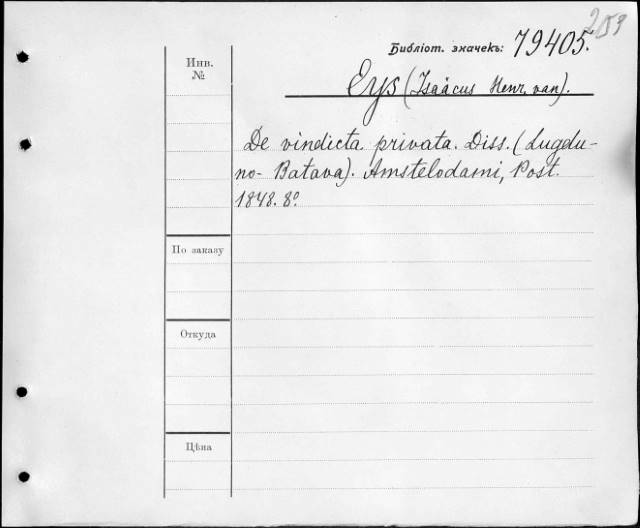 253
Библіот. значекъ: 79405.
Инв. №
Eys (Isaäcus Henr. van).
De vindicta privata. Diss. (Lugdu-
no-Batava). Amstelodami, Post.
1848. 8º.
По заказу
Откуда
Цѣна